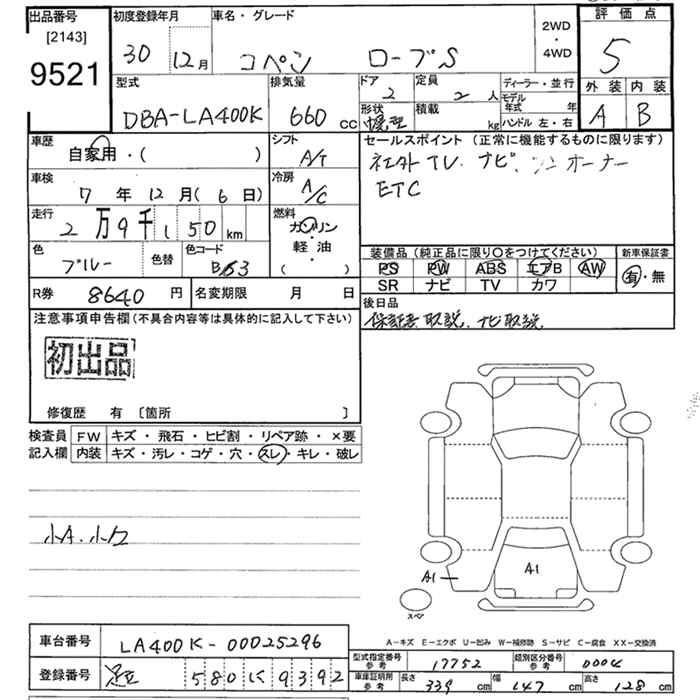 出品番号
[2143]
9521
初度登録年月
30 12月
車名・グレード
コペン ローブS
2WD
・
4WD
評価点
5
外装 内装
A B
型式
DBA-LA400K
排気量
660 cc
ドア
2
定員
2 人
形状
幌型
積載
kg
ディーラー・並行
モデル年式 年
ハンドル 左・右
車歴
自家用・( )
シフト
A/T
車検
7 年 12 月 ( 6 日)
冷房
A/C
走行
2 万 9 千 1 50 km
燃料
ガソリン
軽・油
( )
色
ブルー
色替
色コード
B63
セールスポイント (正常に機能するものに限ります)
社外TV. ナビ. ワンオーナー
ETC
装備品 (純正品に限り○をつけてください)
PS PW ABS エアB AW
SR ナビ TV カワ
新車保証書
有・無
R券 8640 円
名変期限 月 日
後日品
保証書 取説. ナビ取説.
注意事項申告欄 (不具合内容等は具体的に記入して下さい)
初出品
修復歴 有 〔箇所 〕
検査員
記入欄
FW キズ・飛石・ヒビ割・リペア跡・×要
内装 キズ・汚レ・コゲ・穴・スレ・キレ・破レ
小A. 小ワ
A1
A1
スペア
A-キズ E-エクボ U-凹み W-補修跡 S-サビ C-腐食 XX-交換済
車台番号 LA400K-00025296
登録番号 足立 580 K 9392
型式指定番号
参考
17752
類別区分番号
参考
0004
車庫証明用
参考
長さ 339 cm 幅 147 cm 高さ 128 cm